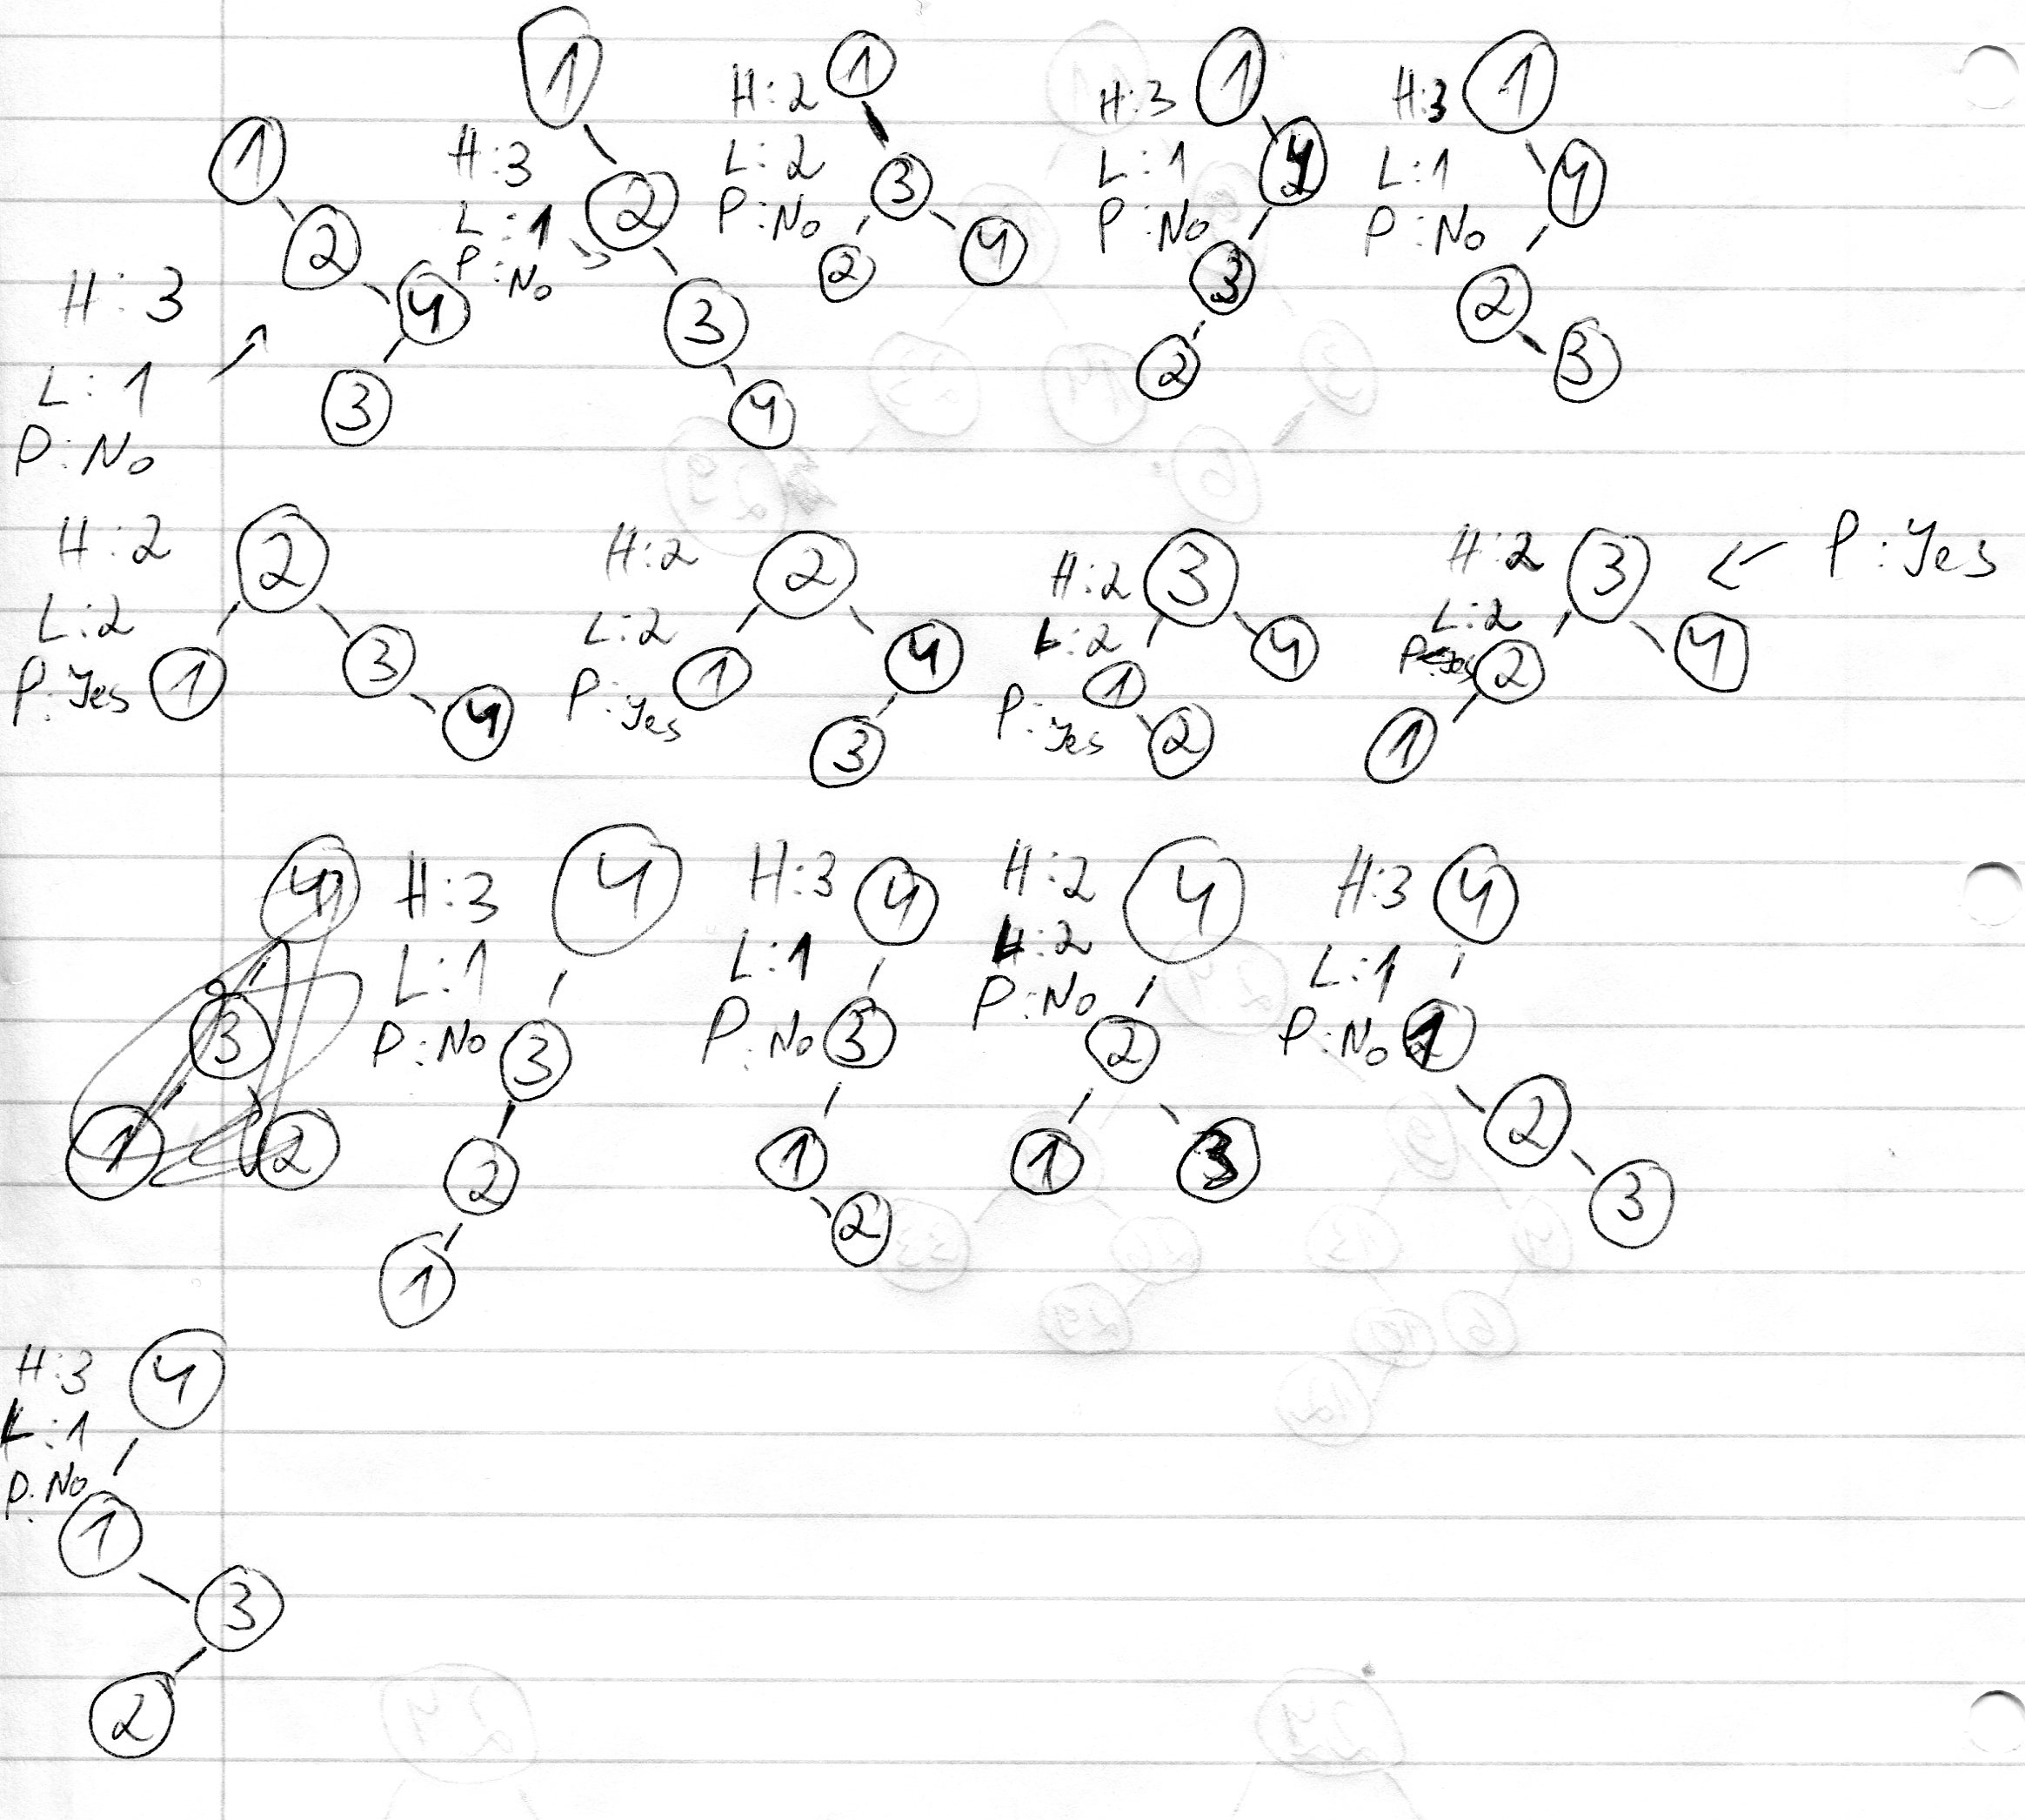 1
2
4
3
H:3
L:1
P:No
1
2
3
4
H:3
L:1
P:No
1
3
2
4
H:2
L:2
P:No
1
4
3
2
H:3
L:1
P:No
1
4
2
3
H:3
L:1
P:No
H:2
L:2
P:Yes
2
1
3
4
H:2
L:2
P:Yes
2
1
4
3
H:2
L:2
P:Yes
3
1
4
2
H:2
L:2
3
2
4
1
P:Yes
4
3
1
2
H:3
L:1
P:No
4
3
2
1
H:3
L:1
P:No
4
3
1
2
H:2
L:2
P:No
4
2
1
3
H:3
L:1
P:No
4
1
2
3
H:3
L:1
P:No
4
1
3
2